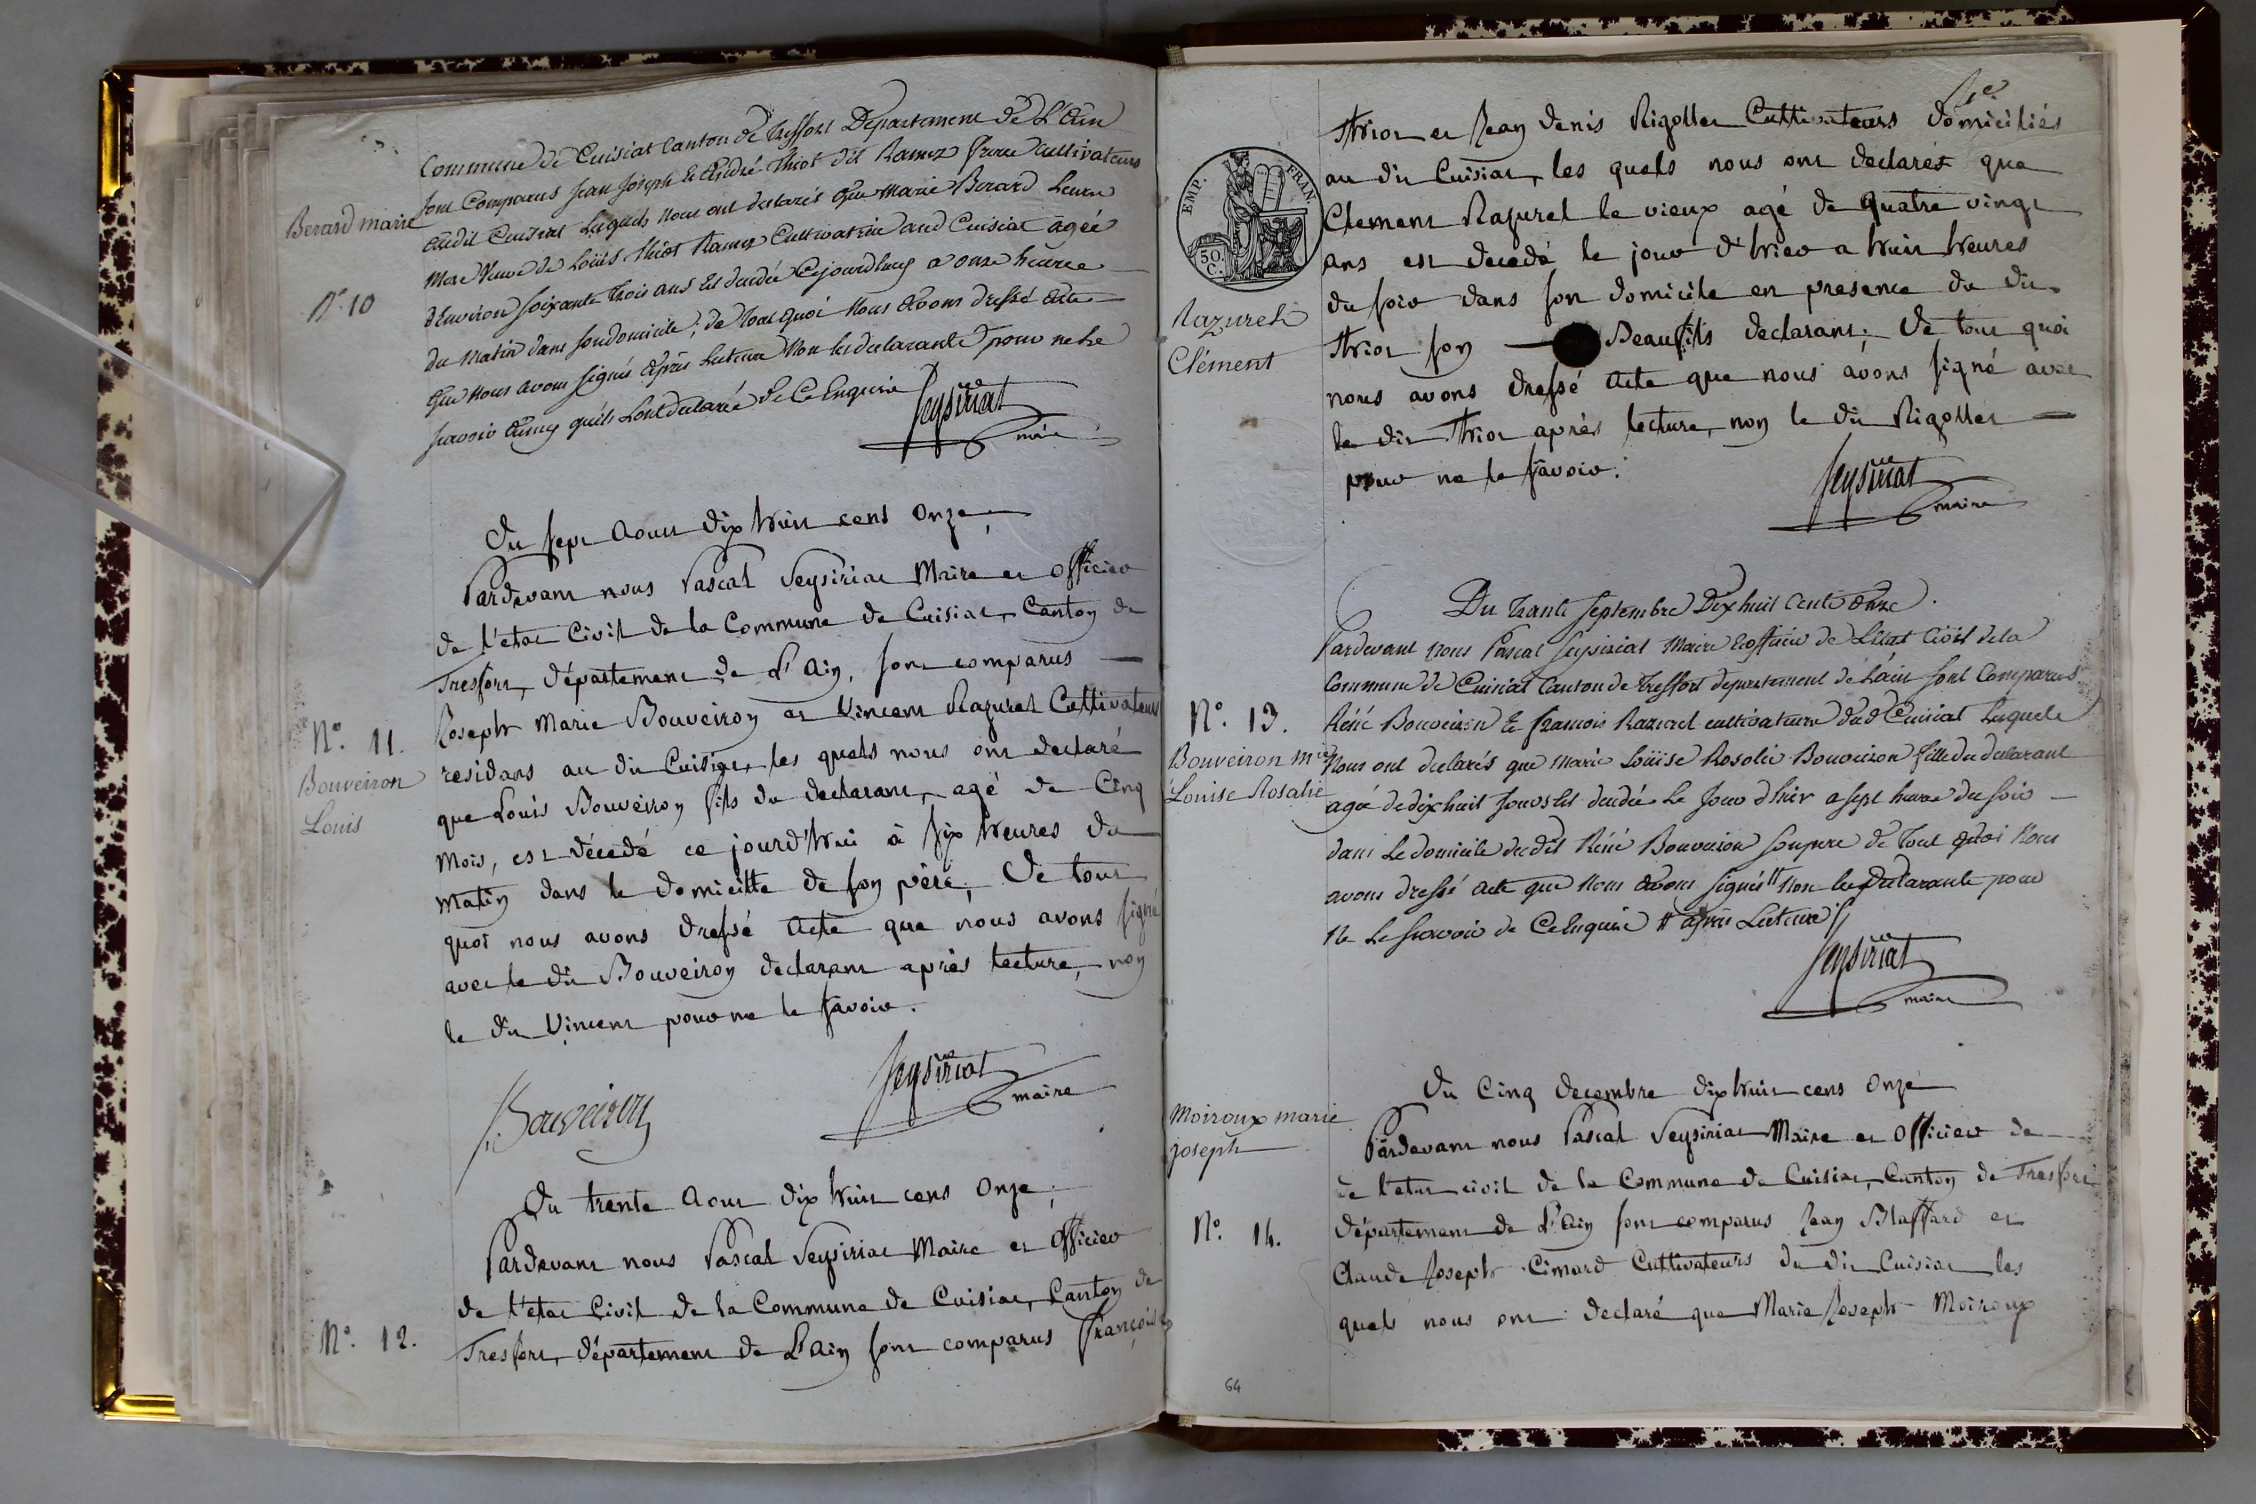 Commune de Cuisiat Canton de Treffort Département de L'Ain
sont Comparus Jean Joseph et André Thiot dit Ramex frere Cultivateurs
Berard marie
audit Cuisiat Lesquels nous ont declarés que Marie Berard Leur
Mere Veuve de Loüis Thiot Ramex Cultivatrice aud Cuisiat agéé
N° 10
d'Environ soixante trois ans Est decedée Cejourdhuy a onze heures
du Matin dans son domicile; de tout quoi Nous Avons dressé acte
que Nous avons signés après Lecture Non les declarants pour ne le
scavoir ainsy quils L'ont declarés de Ce Enquis
Seysiriat
maire
Du sept aout dix huit cent onze,
Pardevant nous Pascal Seysiriat Maire et officier
de l'etat Civil de la Commune de Cuisiat, Canton de
Tresfort, département de L'Ain, sont comparus
Joseph Marie Bouveiron et Vincent Razurel Cultivateurs
N°. 11.
residans au dit Cuisiat, les quels nous ont declaré
Bouveiron
Louis
que Louis Bouveiron fils du declarant, agé de Cinq
Mois, est décedé ce jourd'hui à six heures du
Matin dans le domicille de son père, De tout
quoi nous avons dressé Acte que nous avons signé
avec le dit Bouveiron declarant après lecture, non
le dit Vincent pour ne le savoir.
Seysiriat
maire
Bouveiron
Du trente Aout dix huit cent onze,
Pardevant nous Pascal Seysiriat Maire et Officier
de l'etat Civil de la Commune de Cuisiat, Canton de
N°. 12.
Tresfort, département de L'Ain sont comparus François
Thiot et Jean denis Rigollet Cultivateurs domiciliés
au dit Cuisiat, les quels nous ont declarés que
EMP. FRAN.
50.
C.
Clement Razurel le vieux agé de quatre vingt
ans est decedé le jour d'hier a huit heures
du soir dans son domicile en presence du dit
Razurel
Clément
Thiot son Beaufils declarant; De tout quoi
nous avons dressé Acte que nous avons signé avec
le dit Thiot après lecture, non le dit Rigollet
pour ne le savoir.
Seysiriat
maire
Du trante septembre Dix huit Cents Onze.
Pardevant nous Pascal Seysiriat Maire Et officier de L'état Civil de la
Commune de Cuisiat Canton de Treffort departement de L'ain sont Comparus
N°. 13.
Réné Bouveiron Et francois Razurel cultivateurs dud Cuisiat Lesquels
Bouveiron mie
Louise Rosalie
Nous ont declarés que Marie Loüise Rosalie Bouveiron fille du declarant
agée de dix huit Jours Est decedée Le Jour d'hier a sept heures du soir
dans Le domicile dudit Réné Bouveiron son pere de Tout quoi Nous
avons dressé acte que Nous avons signés Non les Declarants pour
ne Le scavoir de Ce Enquis après Lecture
Seysiriat
maire
Du Cinq decembre dix huit cent onze
Moiroux marie
joseph
Pardevant nous Pascal Seysiriat Maire et officier de
de l'etat civil de la Commune de Cuisiat, Canton de Tresfort
N°. 14.
département de L'Ain sont comparus Jean Blaffard et
Claude Joseph Cimard Cultivateurs du dit Cuisiat les
quels nous ont declaré que Marie Joseph Moiroux
64